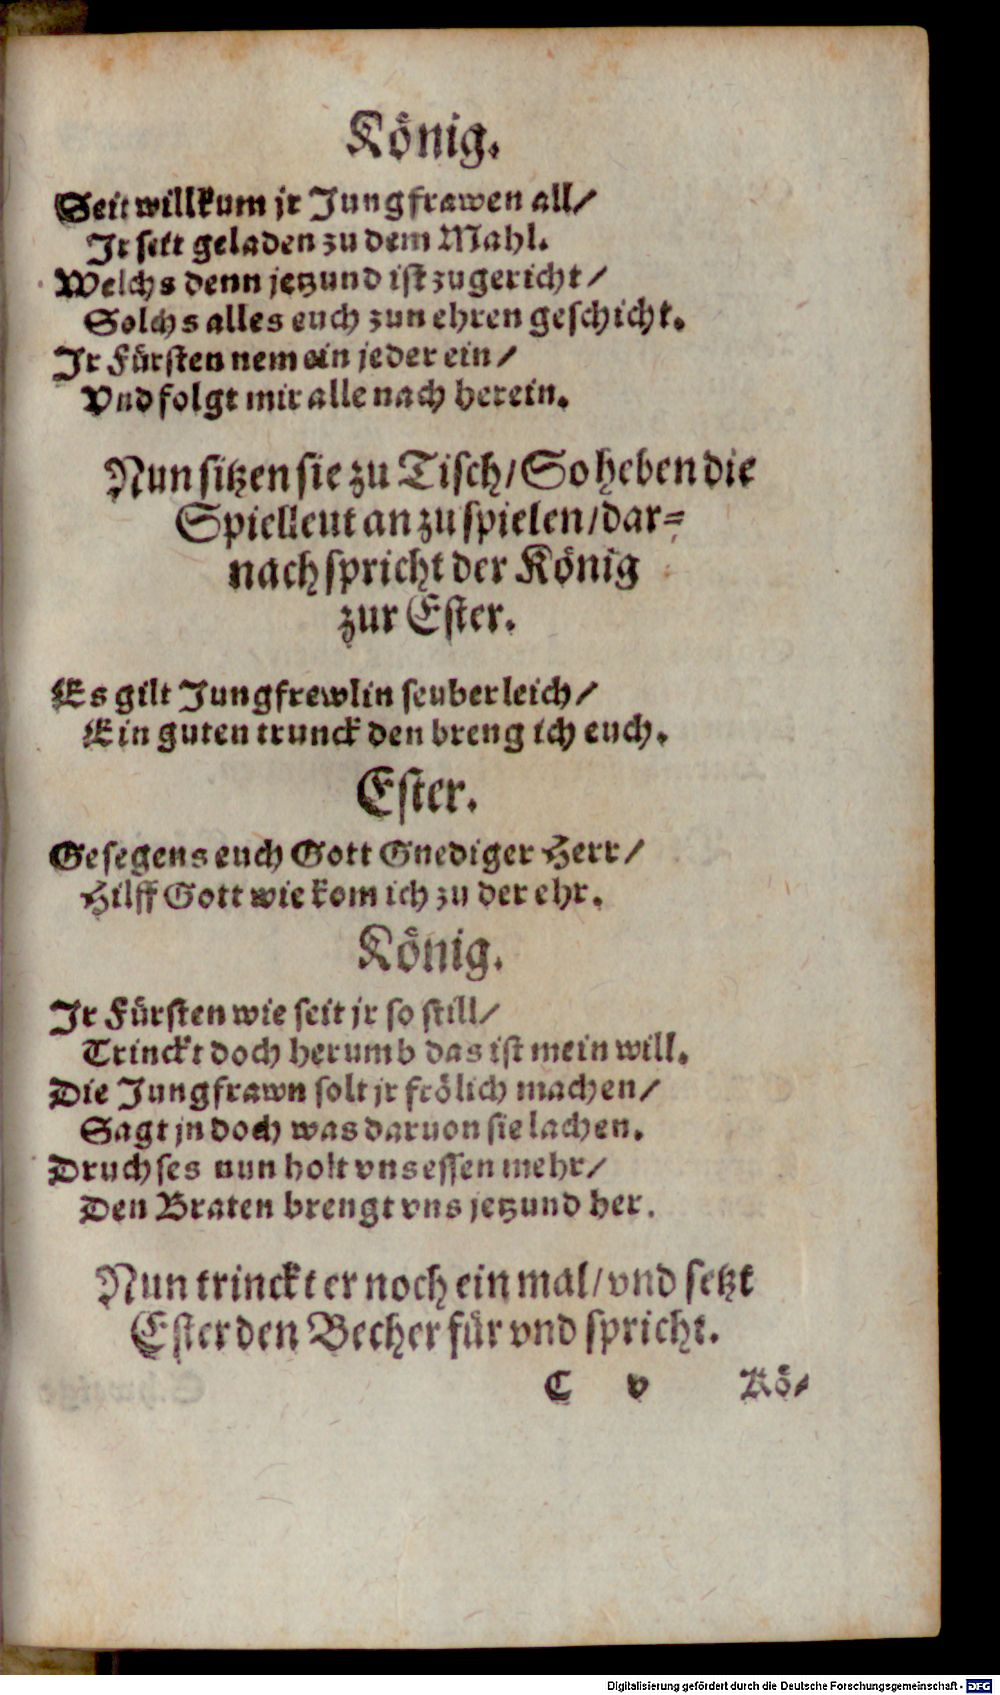 König.
Seit willkum jr Jungfrawen all/
Jr seit geladen zu dem Mahl.
Welchs denn jetzund ist zugericht/
Solchs alles euch zun ehren geschicht.
Jr Fürsten nem ein jeder ein/
Vnd folgt mir alle nach herein.
Nun sitzen sie zu Tisch/ So heben die
Spielleut an zu spielen/ dar=
nach spricht der König
zur Ester.
Es gilt Jungfrewlin seuberleich/
Ein guten trunck den breng ich euch.
Ester.
Gesegens euch Gott Gnediger Herr/
Hilff Gott wie kom ich zu der ehr.
König.
Jr Fürsten wie seit jr so still/
Trinckt doch herumb das ist mein will.
Die Jungfrawn solt jr frölich machen/
Sagt jn doch was daruon sie lachen.
Druchses nun holt vns essen mehr/
Den Braten brengt vns jetzund her.
Nun trinckt er noch ein mal/ vnd setzt
Ester den Becher für vnd spricht.
C v Kö-
Digitalisierung gefördert durch die Deutsche Forschungsgemeinschaft - DFG